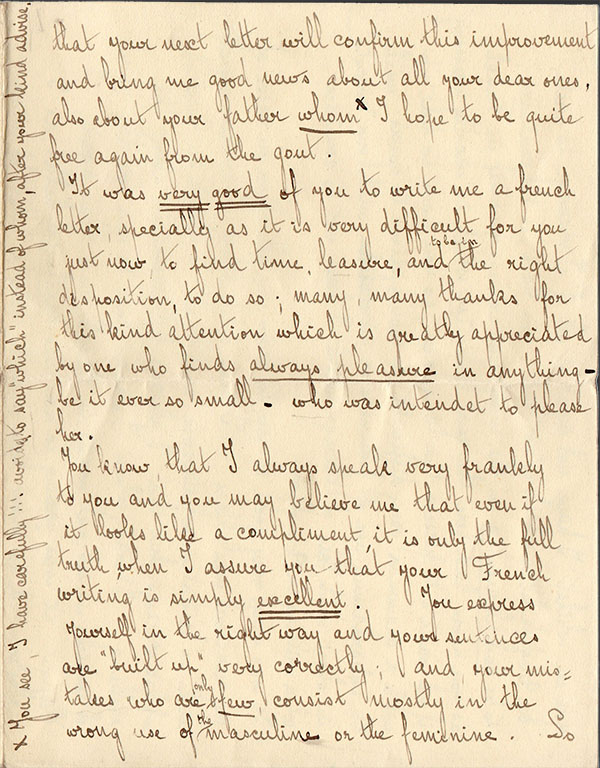 that your next letter will confirm this improvement
and bring me good news about all your dear ones,
also about your father whom x I hope to be quite
free again from the gout.
It was very good of you to write me a french
letter, specially as it is very difficult for you
just now, to find time, leasure, and to be in the right
disposition, to do so; many, many thanks for
this kind attention which is greatly appreciated
by one who finds always pleasure in anything -
be it ever so small - who was intendet to please
her.
You know, that I always speak very frankly
to you and you may believe me that even if
it looks like a compliment, it is only the full
truth, when I assure you that your French
writing is simply excellent. You express
yourself in the right way and your sentences
are "built up" very correctly; and, your mis=
takes who are only few, consist mostly in the
wrong use of the masculine or the feminine. So
x You see, I have carefully!!! avoided to say "which" instead of whom, after your kind advise.